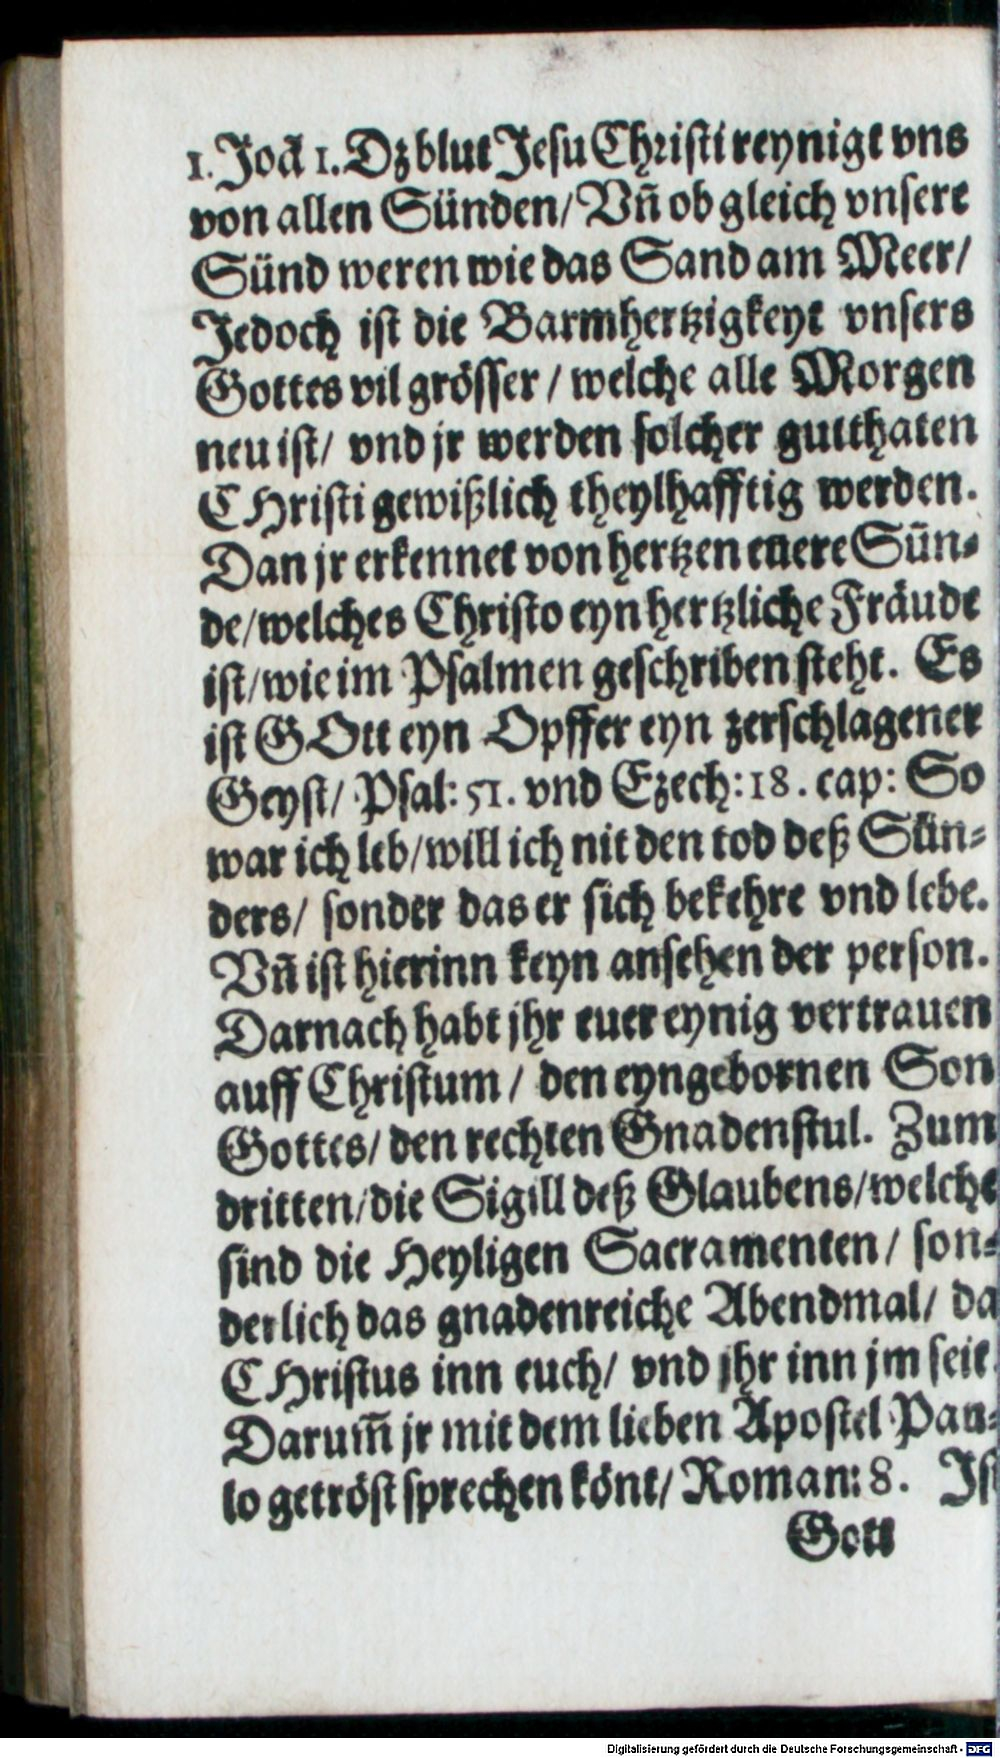 1. Joã 1. Dz blut Jesu Christi reynigt vns
von allen Sünden/ Vñ ob gleich vnsere
Sünd weren wie das Sand am Meer/
Jedoch ist die Barmhertzigkeyt vnsers
Gottes vil grösser / welche alle Morgen
neu ist/ vnd jr werden solcher gutthaten
CHristi gewißlich theylhafftig werden.
Dan jr erkennet von hertzen euere Sün-
de/ welches Christo eyn hertzliche Fräude
ist/ wie im Psalmen geschriben steht. Es
ist GOtt eyn Opffer eyn zerschlagener
Geyst/ Psal: 51. vnd Ezech: 18. cap: So
war ich leb/ will ich nit den tod deß Sün-
ders/ sonder das er sich bekehre vnd lebe.
Vñ ist hierinn keyn ansehen der person.
Darnach habt jhr euer eynig vertrauen
auff Christum / den eyngebornen Son
Gottes/ den rechten Gnadenstul. Zum
dritten/ die Sigill deß Glaubens/ welche
sind die Heyligen Sacramenten/ son-
derlich das gnadenreiche Abendmal/ da
CHristus inn euch/ vnd jhr inn jm seit
Darum̃ jr mit dem lieben Apostel Pau-
lo getröst sprechen könt/ Roman: 8. Ist
Gott
Digitalisierung gefördert durch die Deutsche Forschungsgemeinschaft - DFG